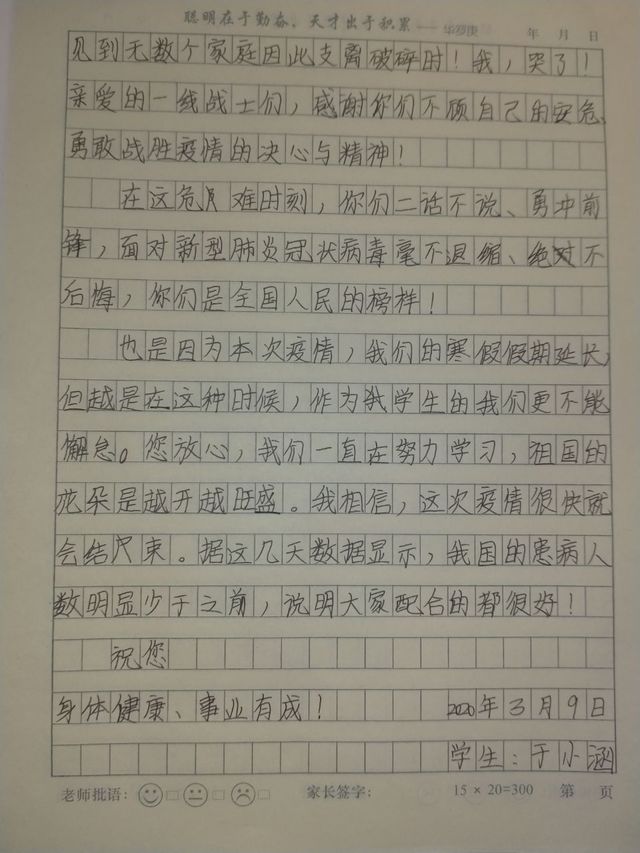 聪明在于勤奋，天才出于积累——华罗庚 年 月 日
见到无数个家庭因此支离破碎时！我，哭了！
亲爱的一线战士们，感谢你们不顾自己的安危、
勇敢战胜疫情的决心与精神！
在这危难时刻，你们二话不说、勇冲前
锋，面对新型肺炎冠状病毒毫不退缩、绝对不
后悔，你们是全国人民的榜样！
也是因为本次疫情，我们的寒假假期延长，
但越是在这种时候，作为学生的我们更不能
懈怠。您放心，我们一直在努力学习，祖国的
花朵是越开越旺盛。我相信，这次疫情很快就
会结束。据这几天数据显示，我国的患病人
数明显少于之前，说明大家配合的都很好！
祝您
身体健康、事业有成！ 2020年3月9日
学生：于小涵
老师批语： 家长签字： 15×20=300 第 页